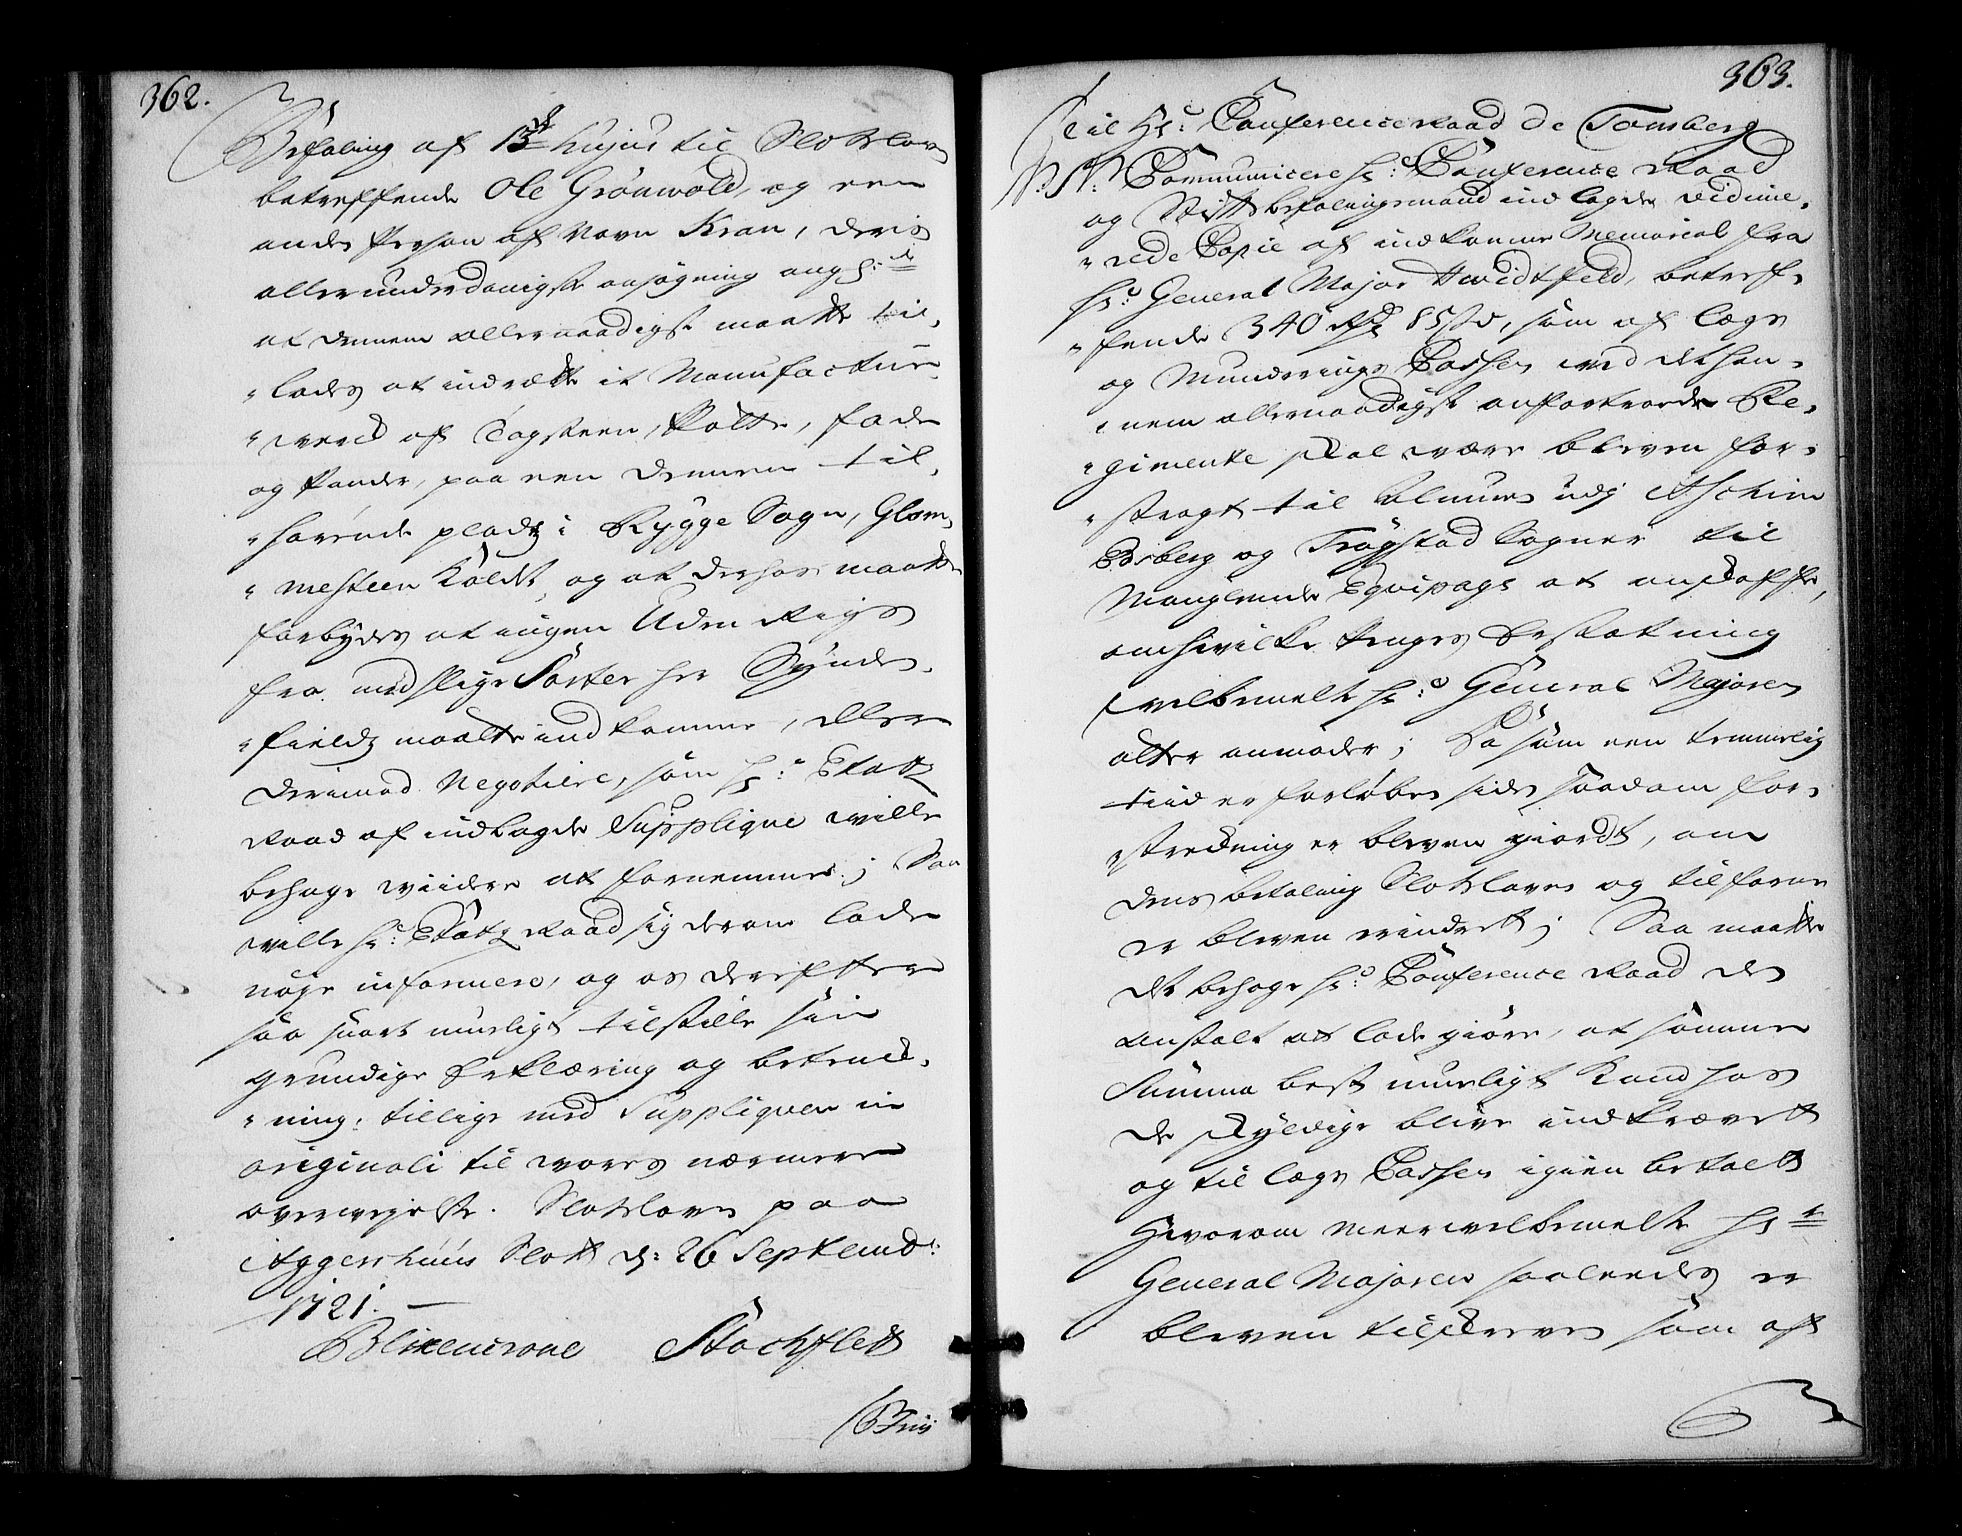 362.
Befaling af 13de hujus til Slotsloven
betreffende Ole Grönwold, og een
anden Person af Navn Kran, deris
allerunderdanigste ansøgning ang:de
at dennem allernaadigst maatte til,
"lades at indrætte it Manufactur
"verck af Tagsteen, Potter, fade
og Pander, paa een dennem til,
"hørende pladtz i Rygge Sogn, Glom,
"mesteen Kaldet, og at derhos maatte
forbydes at ingen Uden Rigs
fra med slige Sorter her Synden,
"fields maatte indkomme, eller
derimod Negotiere, som Hr: Etatz
Raad af indlagde Supplique wille
behage wiidere at fornemme; Saa
wille Hr: Etatz Raad sig derom lade
nøye informere, og os derefter
saa snart mueligt tilstille sin
grundige Erklæring og betenck,
"ning, tillige med Suppliquen in
originali til wores nærmere
overveyelse. Slotsloven paa
Aggershuus Slott d: 26 Septemb:
1721. —
Blixencrone Stochfleth
BFriis
363.
Til Hr: Conference Raad de Tonsberg
P. S. Communicere Hr: Conference Raad
og Stiftsbefalingsmand indlagde vidime,
"rede Copie af indkomne Memorial fra
Hr: General Major Hwidtfeld, betref,
"fende 340 Rdr 85 s, som af Lægs
og Munderings Cassen ved det han,
"nem allernaadigst anfortroede Re,
"gimente skal være bleven for,
"stragt til Almuen udj Aschim
Edsberg og Trögstad Sogner til
Manglende Eqvipage at anskaffe,
om hvilke Penges Erstatning
welbemelte Hr: General Majoren
atter anmoder; Da som een temmelig
tiid er forløben siden saadan for,
"streckning er bleven giordt, om
dens betaling Slotsloven og tilforne
er bleven erindret; Saa maatte
det behage Hr: Conference Raad den
anstalt at lade giøre, at samme
Summa best mueligt Kand hos
de skyldige blive indkrævet
og til Lægs Cassen igien betalt
Hvorom meerwelbemelte Hr:
General Majoren saaledes er
bleven tilskreven som af